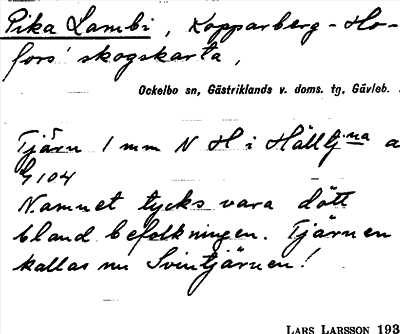 Pika Lambi, Kopparberg-Ho-
fors' skogskarta,
Ockelbo sn, Gästriklands v. doms. tg, Gävleb.
Tjärn 1 mm N H i Hälltj:na a
G104
Namnet tycks vara dött
bland befolkningen. Tjärnen
kallas nu Svintjärnen!
LARS LARSSON 193